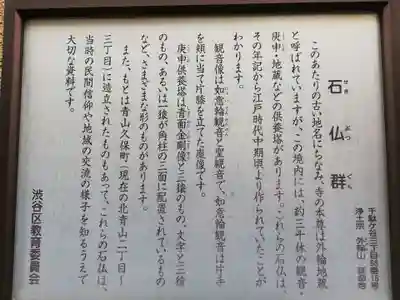 石仏群
せきぶつぐん
千駄ケ谷二丁目
浄土宗
このあたりの古い地名にちなみ、寺の本尊は外輪地蔵
と呼ばれていますが、この境内には、約三十体の観音・
庚申・地蔵などの供養塔があります。これらの石仏は、
その年記から江戸時代中期頃より作られていたことが
わかります。
観音像は如意輪観音と聖観音で、如意輪観音は片手
を頬に当て片膝を立てた座像です。
庚申供養塔は青面金剛像と三猿のもの、文字と三猿
のもの、あるいは一猿が角柱の三面に配置されているもの
など、さまざまな形のものがあります。
また、もとは青山久保町(現在の北青山二丁目〜
三丁目)に造立されたものもあって、これらの石仏は、
当時の民間信仰や地域の交流の様子を知るうえで
大切な資料です。
渋谷区教育委員会